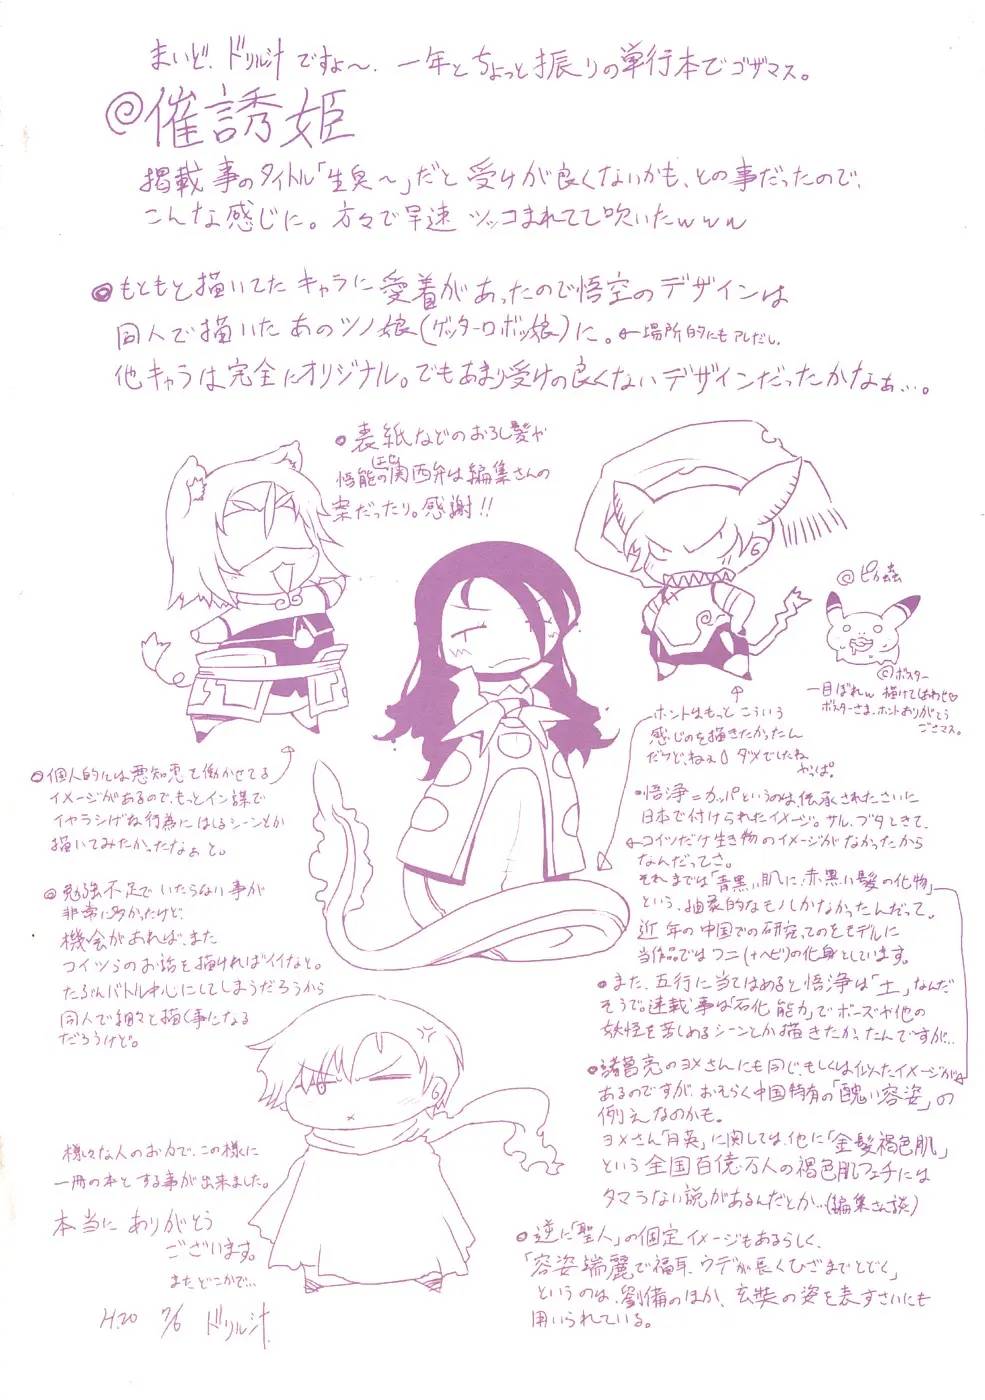 まいど、ドリル汁ですよ～、一年とちょっと振りの単行本でゴザマス。
@催誘姫
掲載事のタイトル「生臭～」だと受けが良くないかも、との事だったので、
こんな感じに。方々で早速ツッコまれてて吹いたwww
◎もともと描いてたキャラに愛着があったので悟空のデザインは
同人で描いたあのツノ娘(ゲッターロボッ娘)に。←場所的にもアレだし、
他キャラは完全にオリジナル。でもあまり受けの良くないデザインだったかなぁ…。
◎表紙などのおろし髪や
悟能の(エセ)関西弁は編集さんの
案だったり。感謝!!
@ピカ蟲
@ポスター
一目ぼれw 描けてしあわせ♡
ポスターさま、ホントありがとう
ごさマス。
ホントはもっとこういう
感じのを描きたかったん
だけど、ねぇ。ダメでしたね
やっぱ。
◎個人的には悪知恵を働かせてる
イメージがあるので、もっとイン謀で
イヤラシげな行為にはしるシーンとか
描いてみたかったなぁと。
◎勉強不足でいたらない事が
非常に多かったけど、
機会があれば、また
コイツらのお話を描ければイイなと。
たぶんバトル中心にしてしまうだろうから
同人で細々と描く事になる
だろうけど。
・悟浄=カッパというのは、伝承されたさいに
日本で付けられたイメージ。サル、ブタときて、
コイツだけ生き物のイメージがなかったから
なんだってさ。
それまでは「青黒い肌に、赤黒い髪の化物」
という、抽象的なモノしかなかったんだって。
近年の中国での研究、でのをモデルに
当作品ではワニ(+ヘビ)の化身としています。
◎また、五行に当てはめると悟浄は「土」なんだ
そうで。連載事は「石化能力」でボーズや他の
妖怪を苦しめるシーンとか描きたかったんですが…
◎諸葛亮のヨメさんにも同じ、もしくは似たイメージが
あるのですが、おそらく中国特有の「醜い容姿」の
例えなのかも。
ヨメさん「月英」に関しては、他に「金髪褐色肌」
という全国百億万人の褐色肌フェチには
タマラない説があるんだとか…(編集さん談)
◎逆に「聖人」の固定イメージもあるらしく、
「容姿端麗で福耳、ウデが長くひざまでとどく」
というのは、劉備のほか、玄奘の姿を表すさいにも
用いられている。
様々な人のお力で、この様に
一冊の本とする事が出来ました。
本当に ありがとう
ございます。
またどこかで…
H.20 7/6 ドリル汁